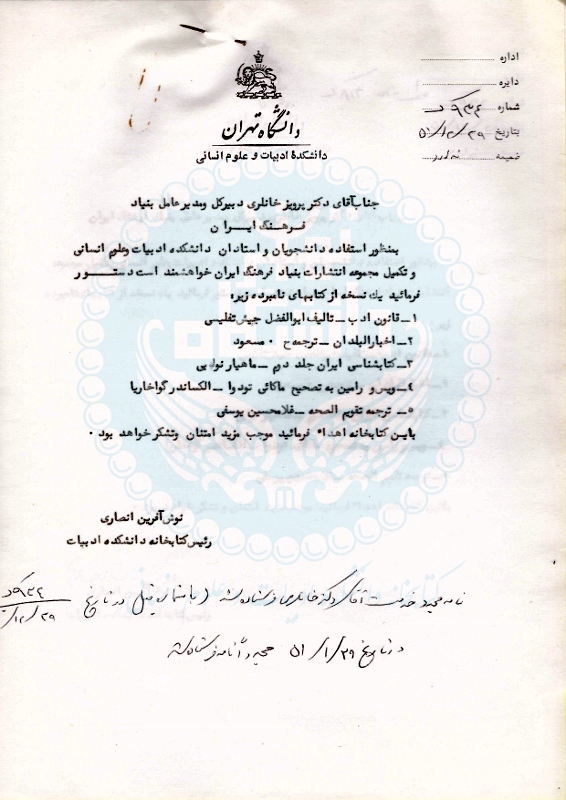 اداره
دایره
شماره ۹۳۴ د
بتاریخ ۵۰/۱۲/۲۹
ضمیمه ندارد
دانشگاه تهران
دانشکدهٔ ادبیات و علوم انسانی
جناب آقای دکتر پرویز خانلری دبیرکل ومدیرعامل بنیاد
فرهنگ ایران
بمنظور استفاده دانشجویان و استادان دانشکده ادبیات وعلوم انسانی
و تکمیل مجموعه انتشارات بنیاد فرهنگ ایران خواهشمند است دستور
فرمائید یك نسخه از کتابهای نامبرده زیر:
۱- قانون ادب - تالیف ابوالفضل حبیش تفلیسی
۲- اخبارالبلدان - ترجمه ح . مسعود
۳- کتابشناسی ایران جلد دوم - ماهیار نوابی
۴- ویس و رامین به تصحیح ماکالی تودوا - الکساندر گواخاریا
۵- ترجمه تقویم الصحه - غلامحسین یوسفی
باین کتابخانه اهداء فرمائید موجب مزید امتنان وتشکر خواهد بود .
نوش آفرین انصاری
رئیس کتابخانه دانشکده ادبیات
نامه مجدد خدمت آقای دکتر خانلری فرستاده شد (با شماره قبل در تاریخ ۹۳۴ د
۵۰/۱۲/۲۹
در تاریخ ۵۱/۱/۲۹ مجددا نامه فرستاده شد